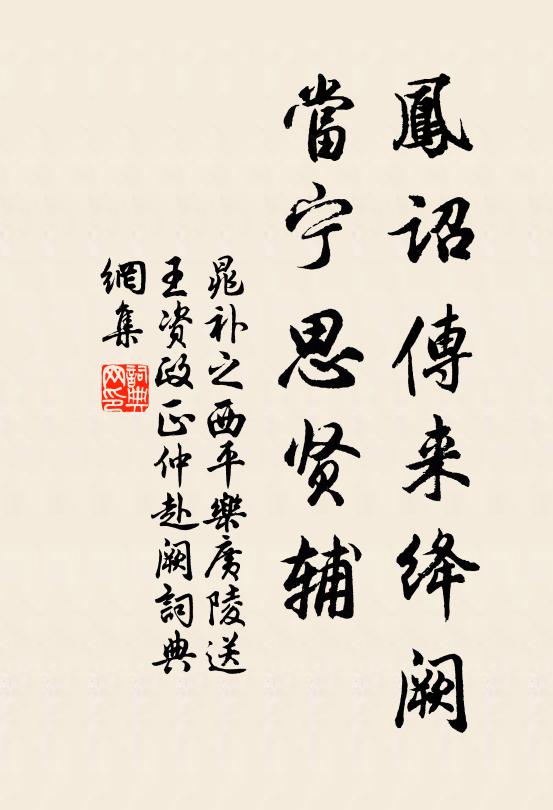 鳳詔傳来绛阙
當宁思贤辅
晁补之西平樂廣陵送
王资政正仲赴阙詞典
網集
詞典网印